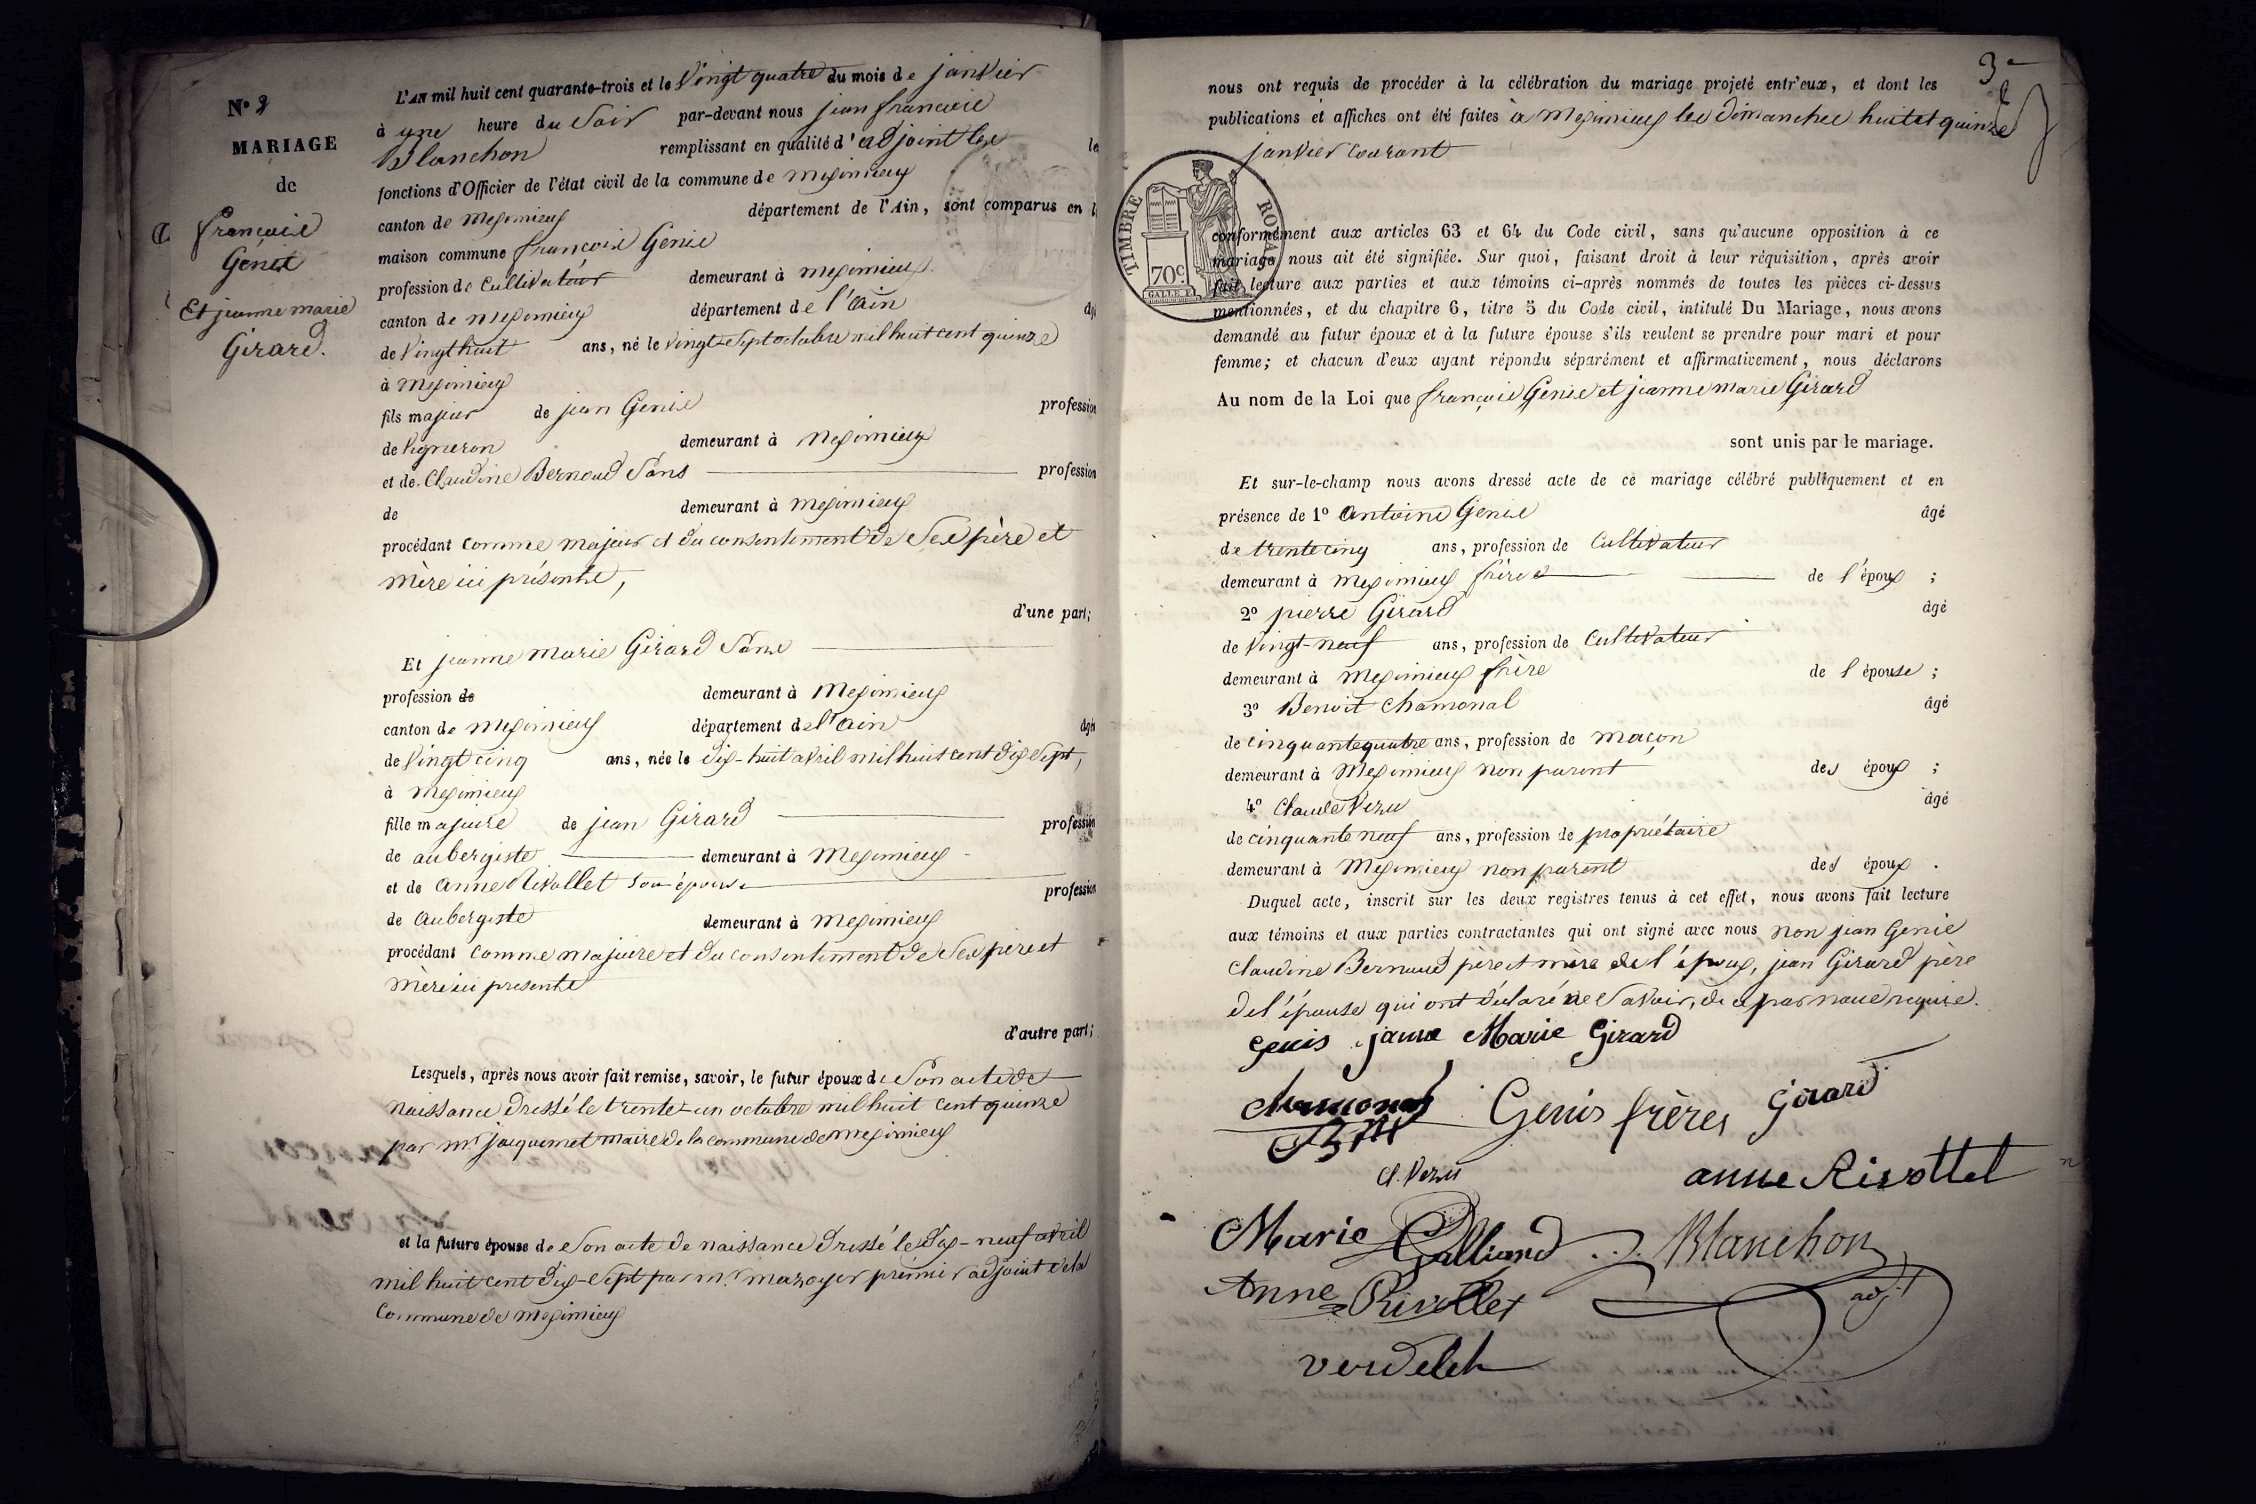 N° 3
MARIAGE
de
françois
Genis
Et jeanne marie
Girard.
L'AN mil huit cent quarante-trois et le Vingt quatre du mois de janvier
à une heure du Soir par-devant nous jean francois
Blanchon remplissant en qualité d'adjoint les
fonctions d'Officier de l'état civil de la commune de meximieux
canton de meximieux département de l'Ain, sont comparus en l
maison commune francois Genis
profession de Cultivateur demeurant à meximieux
canton de meximieux département de l'ain
de Vingt huit ans, né le vingt-sept octobre mil huit cent quinze
à meximieux
fils majeur de jean Genis profession
de Vigneron demeurant à meximieux
et de Claudine Bernoud Sans profession
de demeurant à meximieux
procédant comme majeur et du consentement de Ses père et
mère ici présents,
d'une part;
Et jeanne marie Girard Sans
profession de demeurant à meximieux
canton de meximieux département de l'ain
de Vingt cinq ans, née le dix-huit avril mil huit cent dix sept,
à meximieux
fille majeure de jean Girard profession
de aubergiste demeurant à meximieux
et de anne Rivollet son épouse profession
de aubergiste demeurant à meximieux
procédant comme majeure et du consentement de Ses père et
mère ici presents
d'autre part;
Lesquels, après nous avoir fait remise, savoir, le futur époux de Son acte de
naissance dressé le trente-un octobre mil huit cent quinze
par mr jacquemet maire de la commune de meximieux
et la future épouse de Son acte de naissance dressé le dix-neuf avril
mil huit cent dix-Sept par mr. mazoyer premier adjoint de la
Commune de meximieux
3
nous ont requis de procéder à la célébration du mariage projeté entr'eux, et dont les
publications et affiches ont été faites à meximieux les dimanches huit et quinze
janvier courant
TIMBRE ROYAL
70c.
conformément aux articles 63 et 64 du Code civil, sans qu'aucune opposition à ce
mariage nous ait été signifiée. Sur quoi, faisant droit à leur réquisition, après avoir
fait lecture aux parties et aux témoins ci-après nommés de toutes les pièces ci-dessus
mentionnées, et du chapitre 6, titre 5 du Code civil, intitulé Du Mariage, nous avons
demandé au futur époux et à la future épouse s'ils veulent se prendre pour mari et pour
femme; et chacun d'eux ayant répondu séparément et affirmativement, nous déclarons
Au nom de la Loi que françois Genis et jeanne marie Girard
sont unis par le mariage.
Et sur-le-champ nous avons dressé acte de ce mariage célébré publiquement et en
présence de 1° antoine Genis âgé
de trente cinq ans, profession de Cultivateur
demeurant à meximieux frère de l'époux ;
2° pierre Girard âgé
de Vingt-neuf ans, profession de Cultivateur
demeurant à meximieux frère de l épouse ;
3° Benoit Chamonal âgé
de cinquante quatre ans, profession de maçon
demeurant à meximieux non parent des époux ;
4° Claude Vezu âgé
de cinquante neuf ans, profession de propriétaire
demeurant à meximieux non parent des époux .
Duquel acte, inscrit sur les deux registres tenus à cet effet, nous avons fait lecture
aux témoins et aux parties contractantes qui ont signé avec nous non jean Genis
Claudine Bernoud père et mère de l'époux, jean Girard père
de l'épouse qui ont déclaré ne Savoir, de ce par nous requis.
Genis janne Marie Girard
Genis frères Girard
Cl. Vezu
anne Rivottel
Marie Galliand Blanchon
adjt
Anne Rivollet